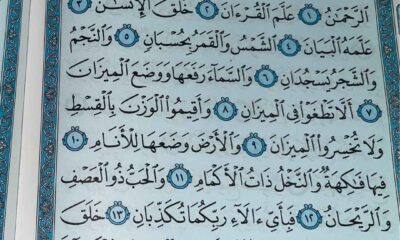 الرَّحْمَٰنُ ١ عَلَّمَ الْقُرْءَانَ ٢ خَلَقَ الْإِنسَٰنَ ٣
عَلَّمَهُ الْبَيَانَ ٤ الشَّمْسُ وَالْقَمَرُ بِحُسْبَانٍ ٥ وَالنَّجْمُ
وَالشَّجَرُ يَسْجُدَانِ ٦ وَالسَّمَاءَ رَفَعَهَا وَوَضَعَ الْمِيزَانَ
٧ أَلَّا تَطْغَوْا فِي الْمِيزَانِ ٨ وَأَقِيمُوا الْوَزْنَ بِالْقِسْطِ
وَلَا تُخْسِرُوا الْمِيزَانَ ٩ وَالْأَرْضَ وَضَعَهَا لِلْأَنَامِ ١٠
فِيهَا فَٰكِهَةٌ وَالنَّخْلُ ذَاتُ الْأَكْمَامِ ١١ وَالْحَبُّ ذُو الْعَصْفِ
وَالرَّيْحَانُ ١٢ فَبِأَيِّ ءَالَاءِ رَبِّكُمَا تُكَذِّبَانِ ١٣ خَلَقَ